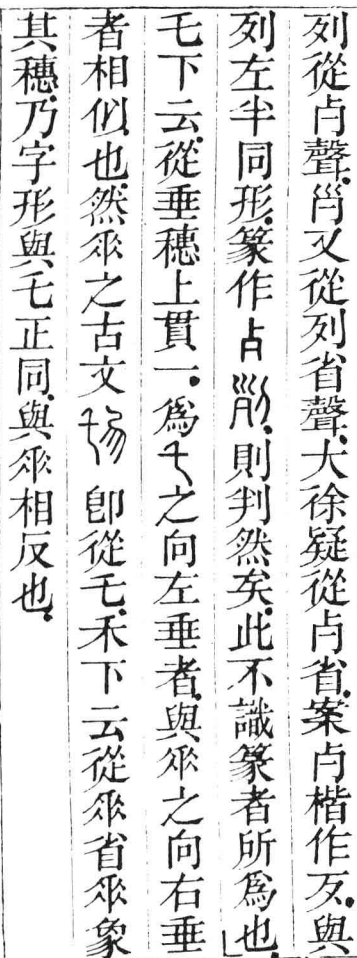 列從歺聲𡿪又從列省聲大徐疑從歺省案歺楷作歹與
列左半同形篆作則判然矣此不識篆者所爲也
乇下云從垂穗上貫一爲乇之向左垂者與𠂹之向右垂
者相似也然𠂹之古文卽從乇禾下云從𠂹省𠂹象
其穗乃字形與乇正同與𠂹相反也